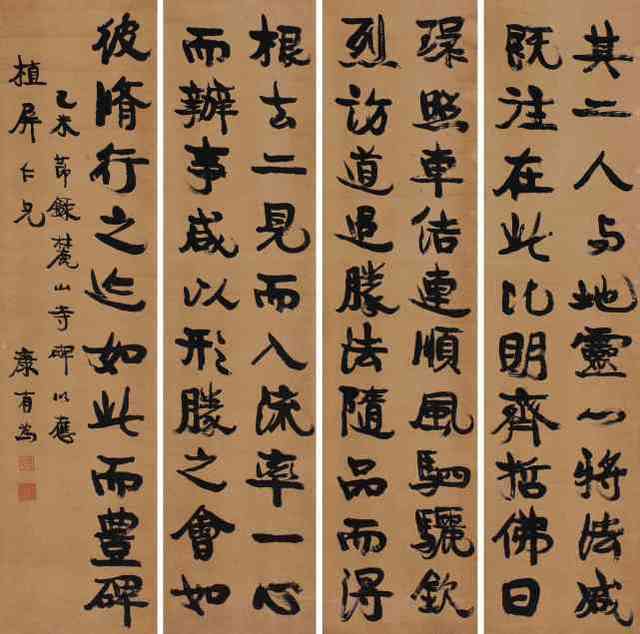 其二人与地靈心將法咸
既注在此比明齊哲佛日
環照車連順風駟驪欽
烈訪道追勝法隨品而得
根去二見而入流率一心
而辦事咸以形勝之會如
彼隋行之迹如此而豊碑
乙未節錄麓山寺碑以應
植屏仁兄 康有為